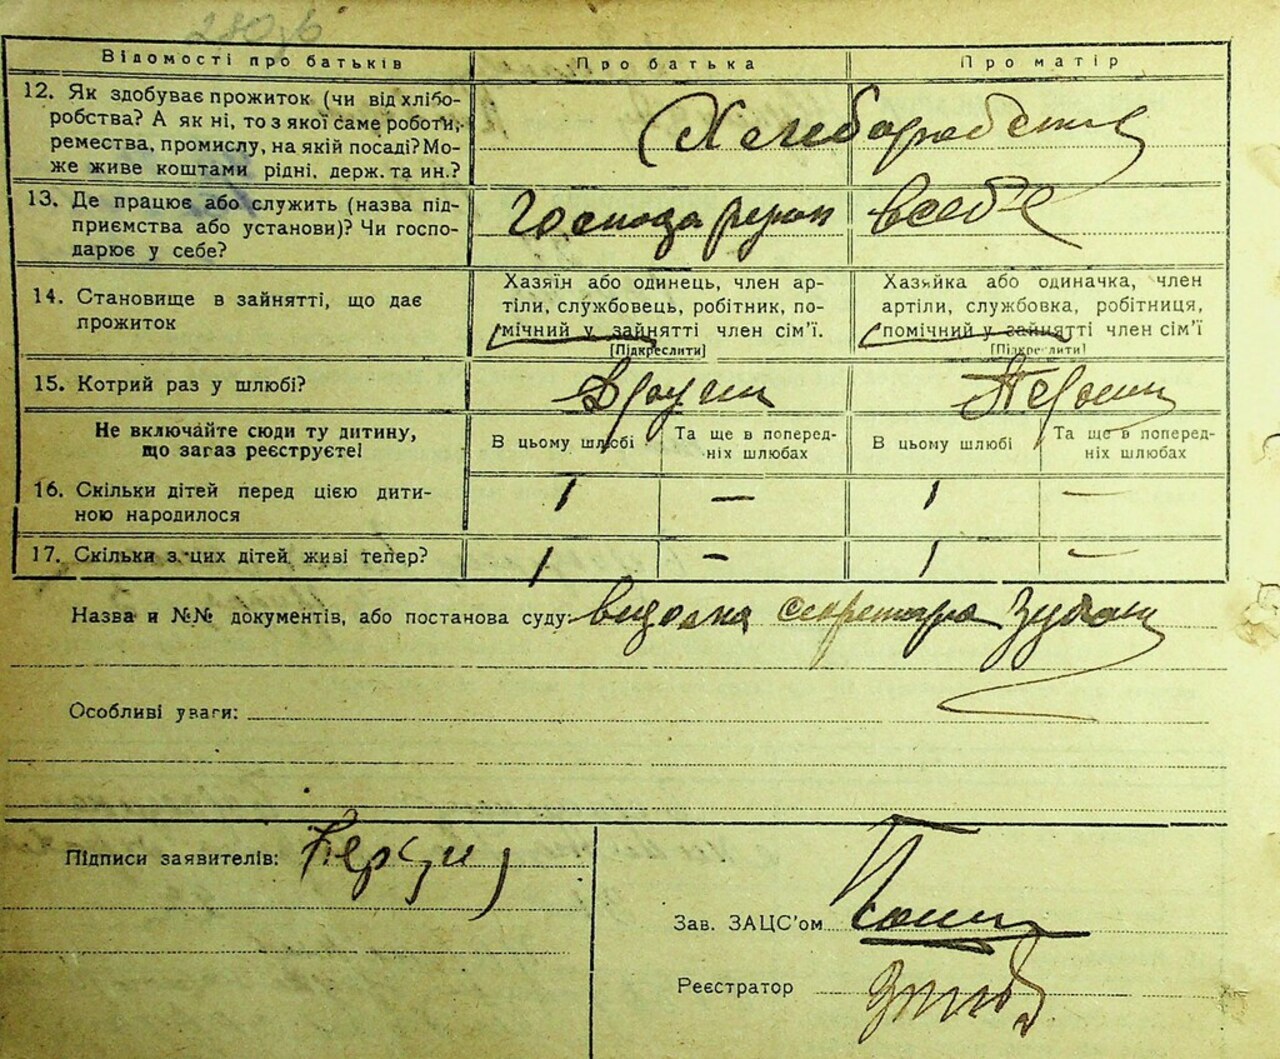 Відомості про батьків
Про батька
Про матір
12. Як здобуває прожиток (чи від хлібо-
робства? А як ні, то з якої саме роботи,
ремества, промислу, на якій посаді? Мо-
же живе коштами рідні, держ. та ин.?
13. Де працює або служить (назва під-
приємства або установи)? Чи госпо-
дарює у себе?
всебе
14. Становище в зайнятті, що дає
прожиток
Хазяїн або одинець, член ар-
тіли, службовець, робітник, по-
мічний у зайнятті член сім'ї.
[Підкреслити]
Хазяйка або одиначка, член
артіли, службовка, робітниця,
помічний у зайнятті член сім'ї
[Підкреслити]
15. Котрий раз у шлюбі?
Не включайте сюди ту дитину,
що загаз реєструєте!
В цьому шлюбі
Та ще в поперед-
ніх шлюбах
В цьому шлюбі
Та ще в поперед-
ніх шлюбах
16. Скільки дітей перед цією дити-
ною народилося
1 — 1 —
17. Скільки з цих дітей живі тепер?
1 — 1 —
Назва и №№ документів, або постанова суду: секретара
Особливі уваги:
Підписи заявителів:
Зав. ЗАЦС'ом
Реєстратор